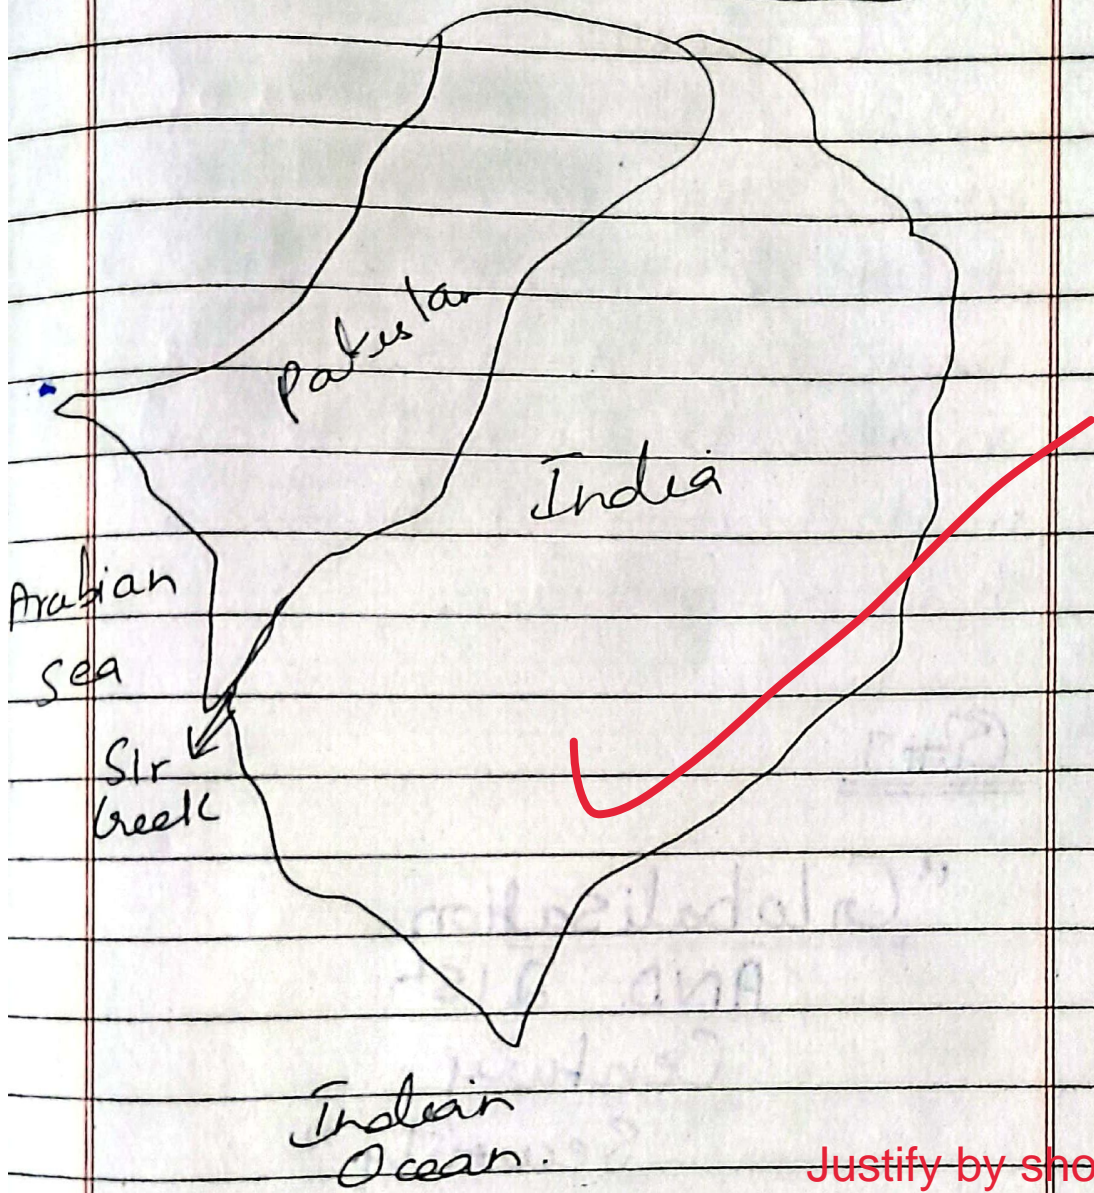 Pakistan
India
Arabian
Sea
Sir
Creek
Indian
Ocean.
Justify by sho